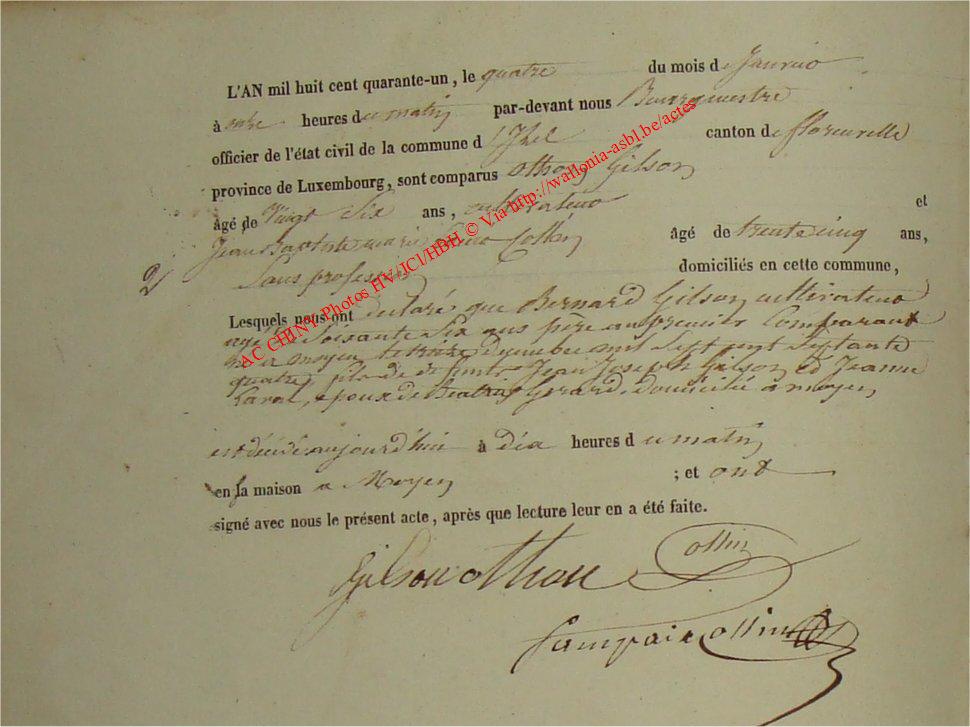 L'AN mil huit cent quarante-un, le quatre du mois de Janvier
à onze heures du matin par-devant nous Bourguemestre
officier de l'état civil de la commune d'Izel canton de florenville
province de Luxembourg, sont comparus othon Gilson
âgé de Vingt Six ans, cultivateur et
Jean Baptiste marie ottin âgé de trente cinq ans,
2
Sans profession domiciliés en cette commune,
Lesquels nous ont declaré que Bernard Gilson cultivateur
agé de Soixante Six ans père au premier Comparant
né a moyen le treize decembre mil Sept cent Septante
quatre, fils de defunts Jean Joseph Gilson et Jeanne
époux de Gerard, domicilié a moyen
est décédé aujourd'hui à dix heures du matin
en sa maison a Moyen ; et ont
signé avec nous le présent acte, après que lecture leur en a été faite.
Gilson othon ottin
ottin
AC CHINY-Photos HV/JCI/HBH © Via http://wallonia-asbl.be/actes